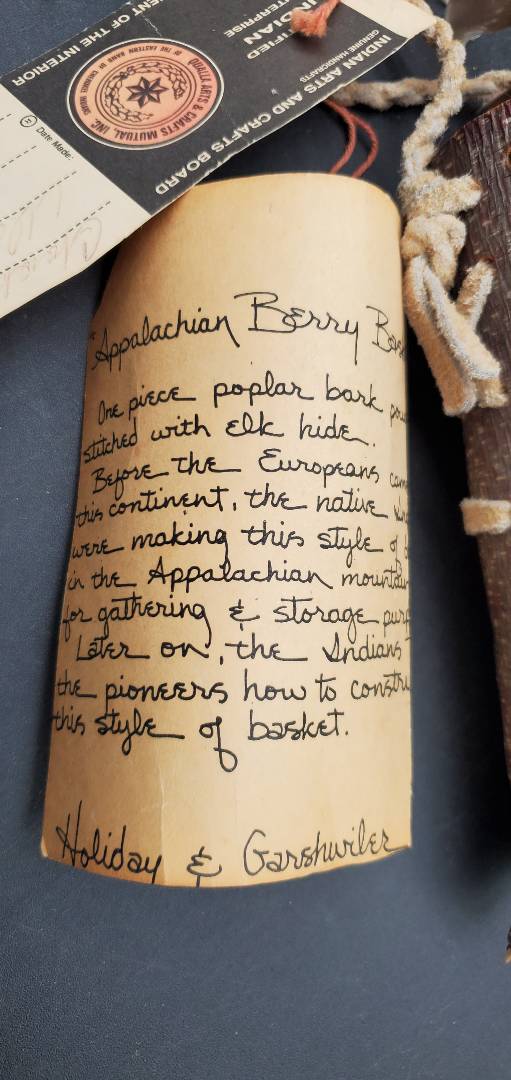 ENT OF THE INTERIOR
INDIAN
TIFIED
TERPRISE
GENUINE HANDICRAFTS
INDIAN ARTS AND CRAFTS BOARD
QUALLA ARTS & CRAFTS MUTUAL, INC.
OF THE EASTERN BAND OF CHEROKEE INDIANS
Date Made:
"Appalachian Berry Bas
One piece poplar bark
stitched with elk hide.
Before the Europeans cam
this continent, the native
were making this style of
in the Appalachian mountain
for gathering & storage purp
Later on, the Indians
the pioneers how to constru
this style of basket.
Holiday & Garshwiler